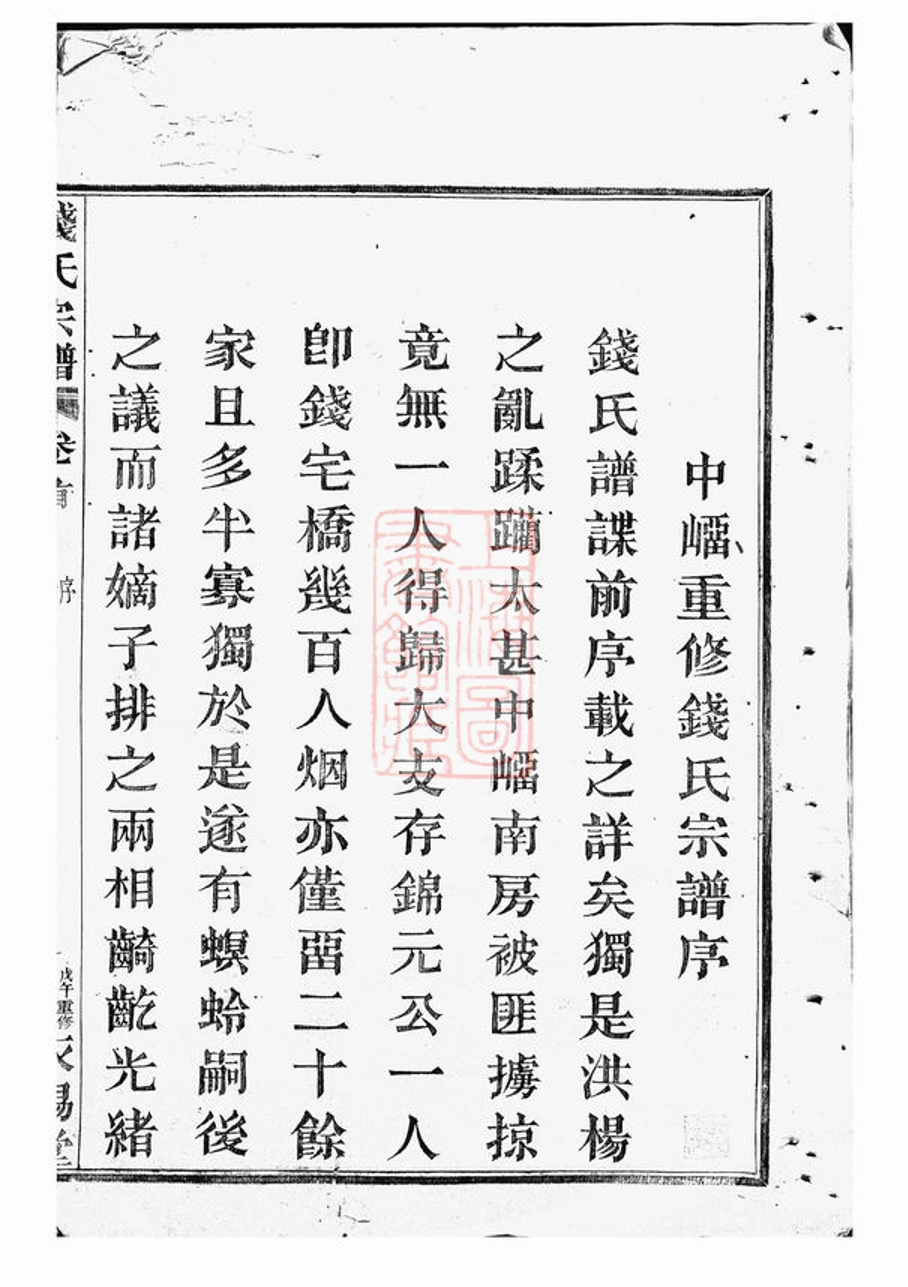 中嵧重修錢氏宗譜序
錢氏譜諜前序載之詳矣獨是洪楊
之亂蹂躪太甚中嵧南房被匪擄掠
竟無一人得歸大支存錦元公一人
卽錢宅橋幾百人烟亦僅畱二十餘
家且多半寡獨於是遂有螟蛉嗣後
之議而諸嫡子排之兩相齮齕光緒
錢氏宗譜 卷首 序 戊午重修
上海圖書館藏